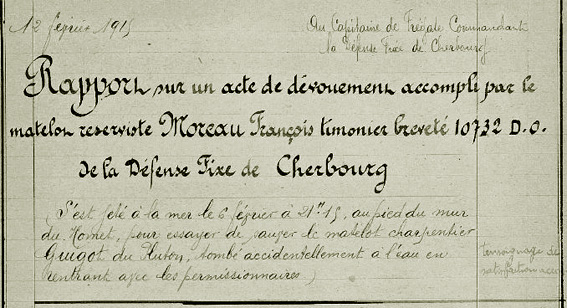 12 février 1915
Du Capitaine de Frégate Commandant
la Défense Fixe de Cherbourg
Rapport sur un acte de dévouement accompli par le
matelot reserviste Moreau François timonier breveté 10732 D.O.
de la Défense Fixe de Cherbourg
(S'est jeté à la mer le 6 février à 21h15, au pied du mur
du Homet, pour essayer de sauver le matelot charpentier
Guigot du Huton, tombé accidentellement à l'eau en
rentrant avec les permissionnaires)
témoignage de
satisfaction